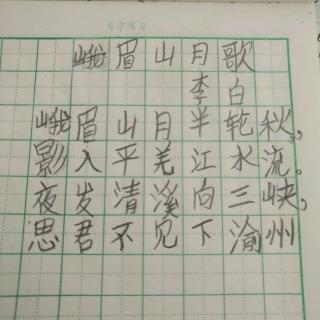 写字练习
峨眉山月歌
李白
峨眉山月半轮秋,
影入平羌江水流。
夜发清溪向三峡,
思君不见下渝州